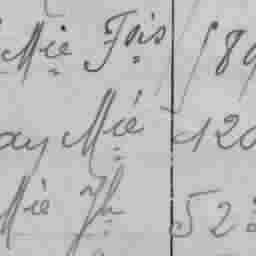 Mie Fois 189
ay Mié 120
Mie Jh 52